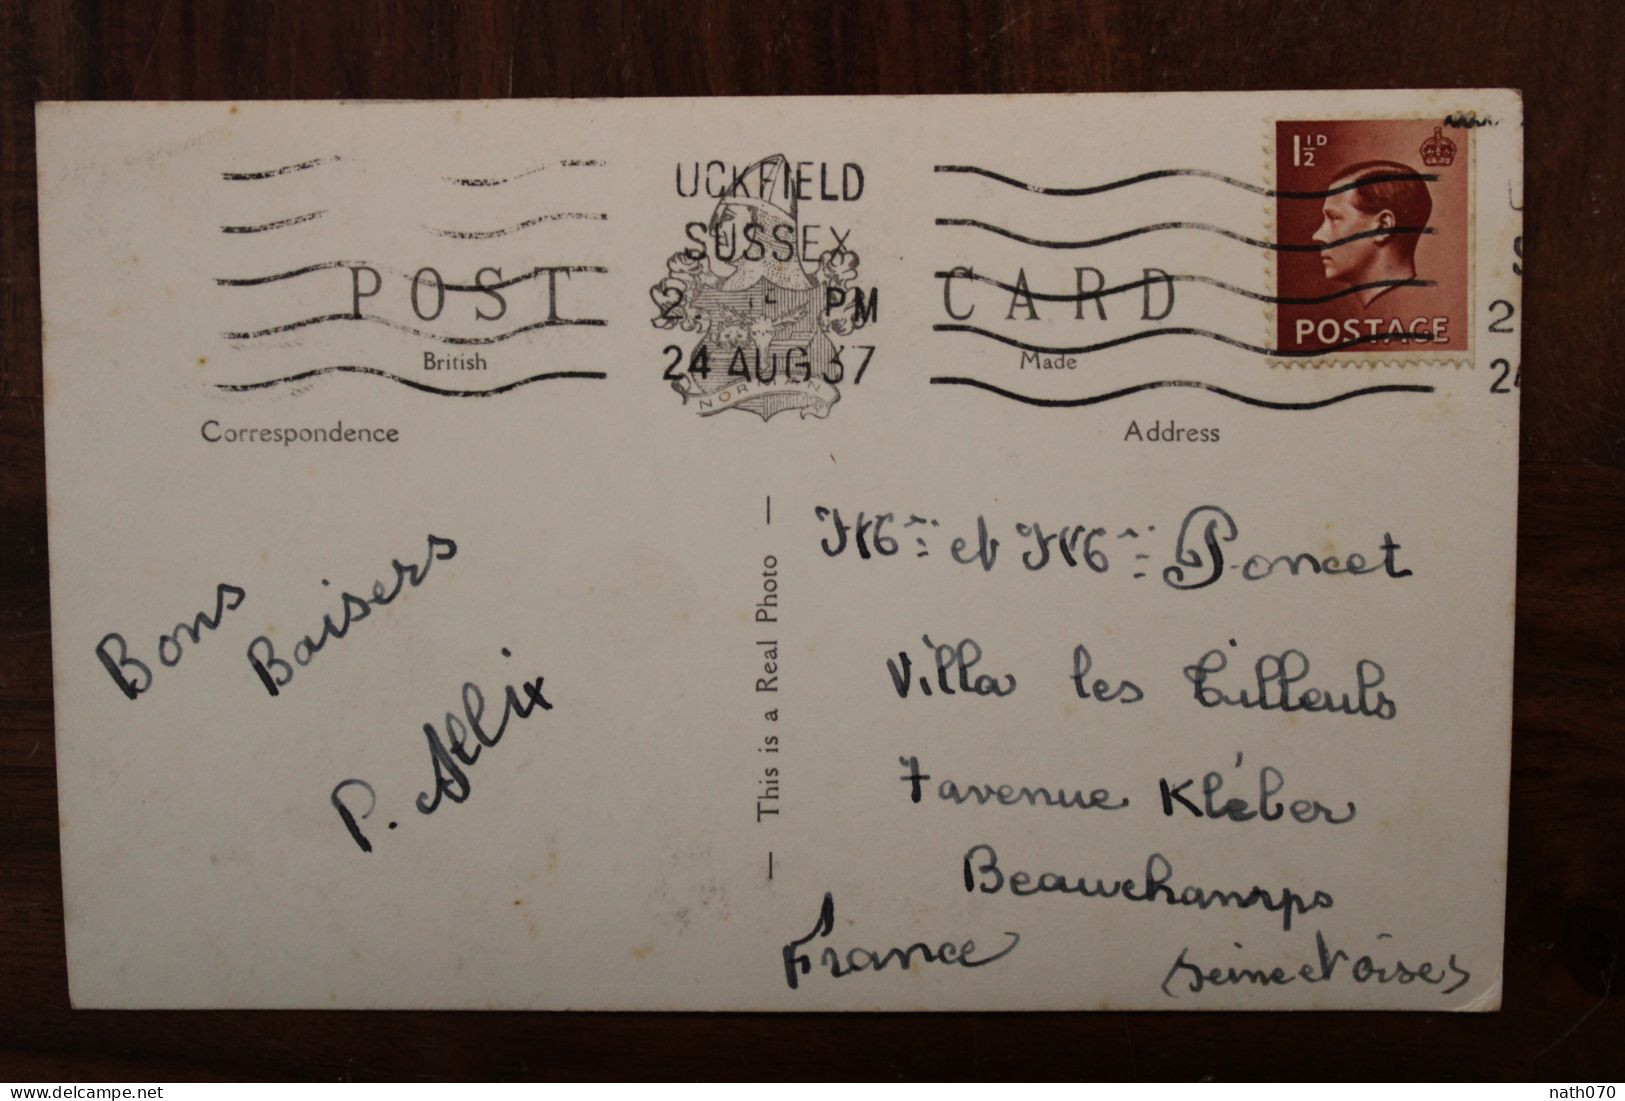 UCKFIELD
SUSSEX
PM
24 AUG 37
1½D
POSTAGE
2
24
POST CARD
British Made
NORMAN
Correspondence
Address
This is a Real Photo
Bons
Baisers
P. Alix
et Poncet
Villa les Tilleuls
7 avenue Kléber
Beauchamps
France
Seine et Oise
nath070